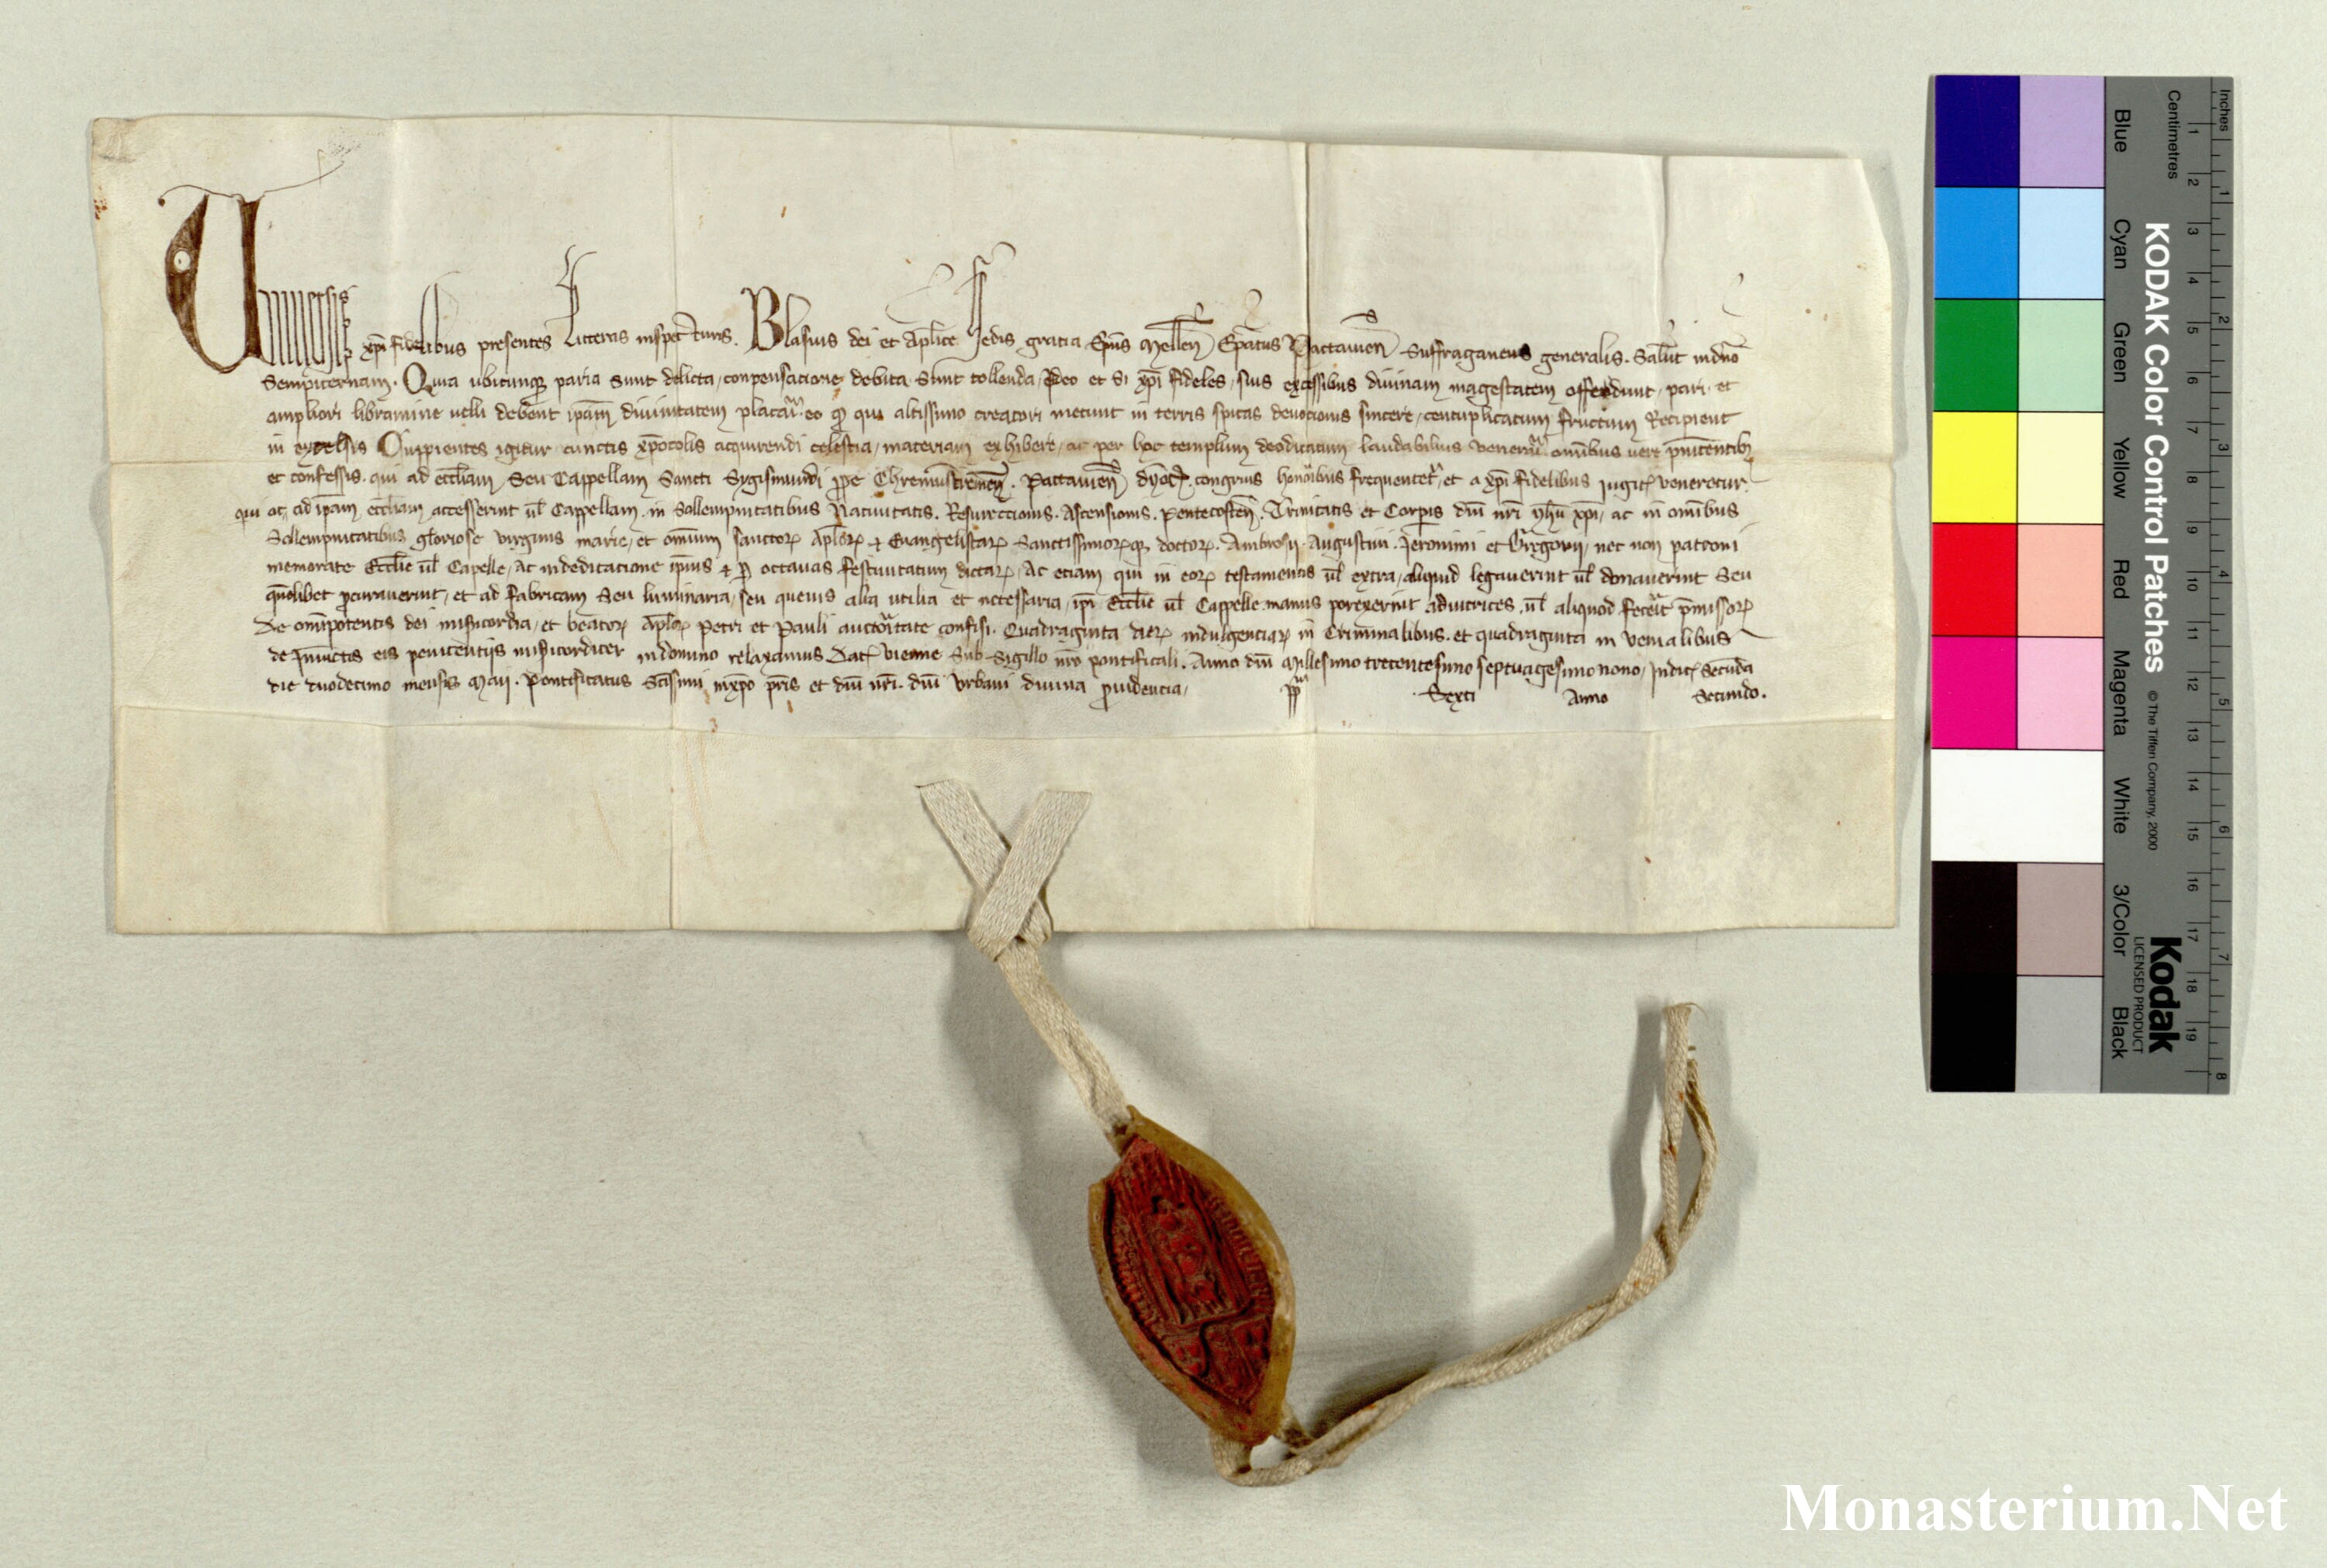 Uniuersis xp̄i fidelibus presentes Litteras inspecturis. Blasius dei et Ap̄lice Sedis gracia Ep̄us Mellen̄ Ep̄atus Pactauien̄ Suffraganeus generalis. Salut̄ in dn̄o
Sempiternam. Quia ubicunqꝫ paria sunt delicta, conpensacione debita sunt tollenda, Ideo et si xp̄i fideles, suis excessibus diuinam magestatem offendunt, pari, et
ampliori libramine uelli debent ip̄am diuinitatem placare. eo qꝫ qui altissimo creatori metunt in terris spicas deuocionis sincere, centuplicatum fructum Recipient
in excelsis Cuppientes igitur cunctis xp̄ocolis acquirendi celestia, materiam exhibere, ac per hoc templum deodicatum laudabilius veneret᷑. om̄ibus uere pn̄itentibꝫ
et confessis. qui ad eccl̄iam, Seu Cappellam Sancti Sygismundi ꝓpe Chremsmunstren̄. Pactauien̄ dyoc̄. congruis honōibus frequentet᷑, et a xp̄i fidelibus iugit᷑ veneretur.
qui ac ad ip̄am eccl̄iam accesserint ul̄ Cappellam. in Sollempnitatibus Natiuitatis. Resurreccionis. Ascensionis. Pentecosten̄. Trinitatis et Corp̄is dn̄i nr̄i yhū xp̄i, ac in om̄ibus
Sollempnitatibus gloriose virginis marie, et om̄ium sanctoꝝ ap̄loꝝ ⁊ Euangelistaꝝ Sanctissimoꝝqꝫ doctoꝝ. Ambrosii Augustini. Jeronimi et Gregorii, nec non patroni
memorate Eccl̄ie ul̄ Capelle, Ac in dedicacione ip̄ius ⁊ ꝑ octauas festiuitatum dictaꝝ, Ac eciam qui in eoꝝ testamentis ul̄ extra, aliquid legauerint ul̄ donauerint Seu
quōlibet ꝓcurauerint, et ad fabricam Seu luminaria, seu queuis alia utilia et necessaria, ip̄i Eccl̄ie ul̄ Cappelle manus porexerint adiutrices, ul̄ aliquod fecerīt p̄missoꝝ
De om̄ipotentis dei misericordia, et beatoꝝ Ap̄loꝝ Petri et Pauli auctōitate confisi. Quadraginta dieꝝ indulgenciaꝝ in Criminalibus. et quadraginta in venialibus
de Iniunctis eis penitentiis misericorditer in domino relaxamus Dat᷑ Vienne Sub Sigillo nr̄o pontificali. Anno dn̄i Millesimo trecentesimo septuagesimo nono, Indic̄ Secunda
die duodecimo mensis Maii. Pontificatus Sc̄issimi in xp̄o pr̄is et dn̄i nr̄i. dn̄i Vrbani diuina ꝓuidencia, pp̄ Sexti Anno Secundo.
Inches
Centimetres
1 2 3 4 5 6 7 8
1 2 3 4 5 6 7 8 9 10 11 12 13 14 15 16 17 18 19
KODAK Color Control Patches © The Tiffen Company, 2000
Kodak
LICENSED PRODUCT
Blue Cyan Green Yellow Red Magenta White 3/Color Black
Monasterium.Net